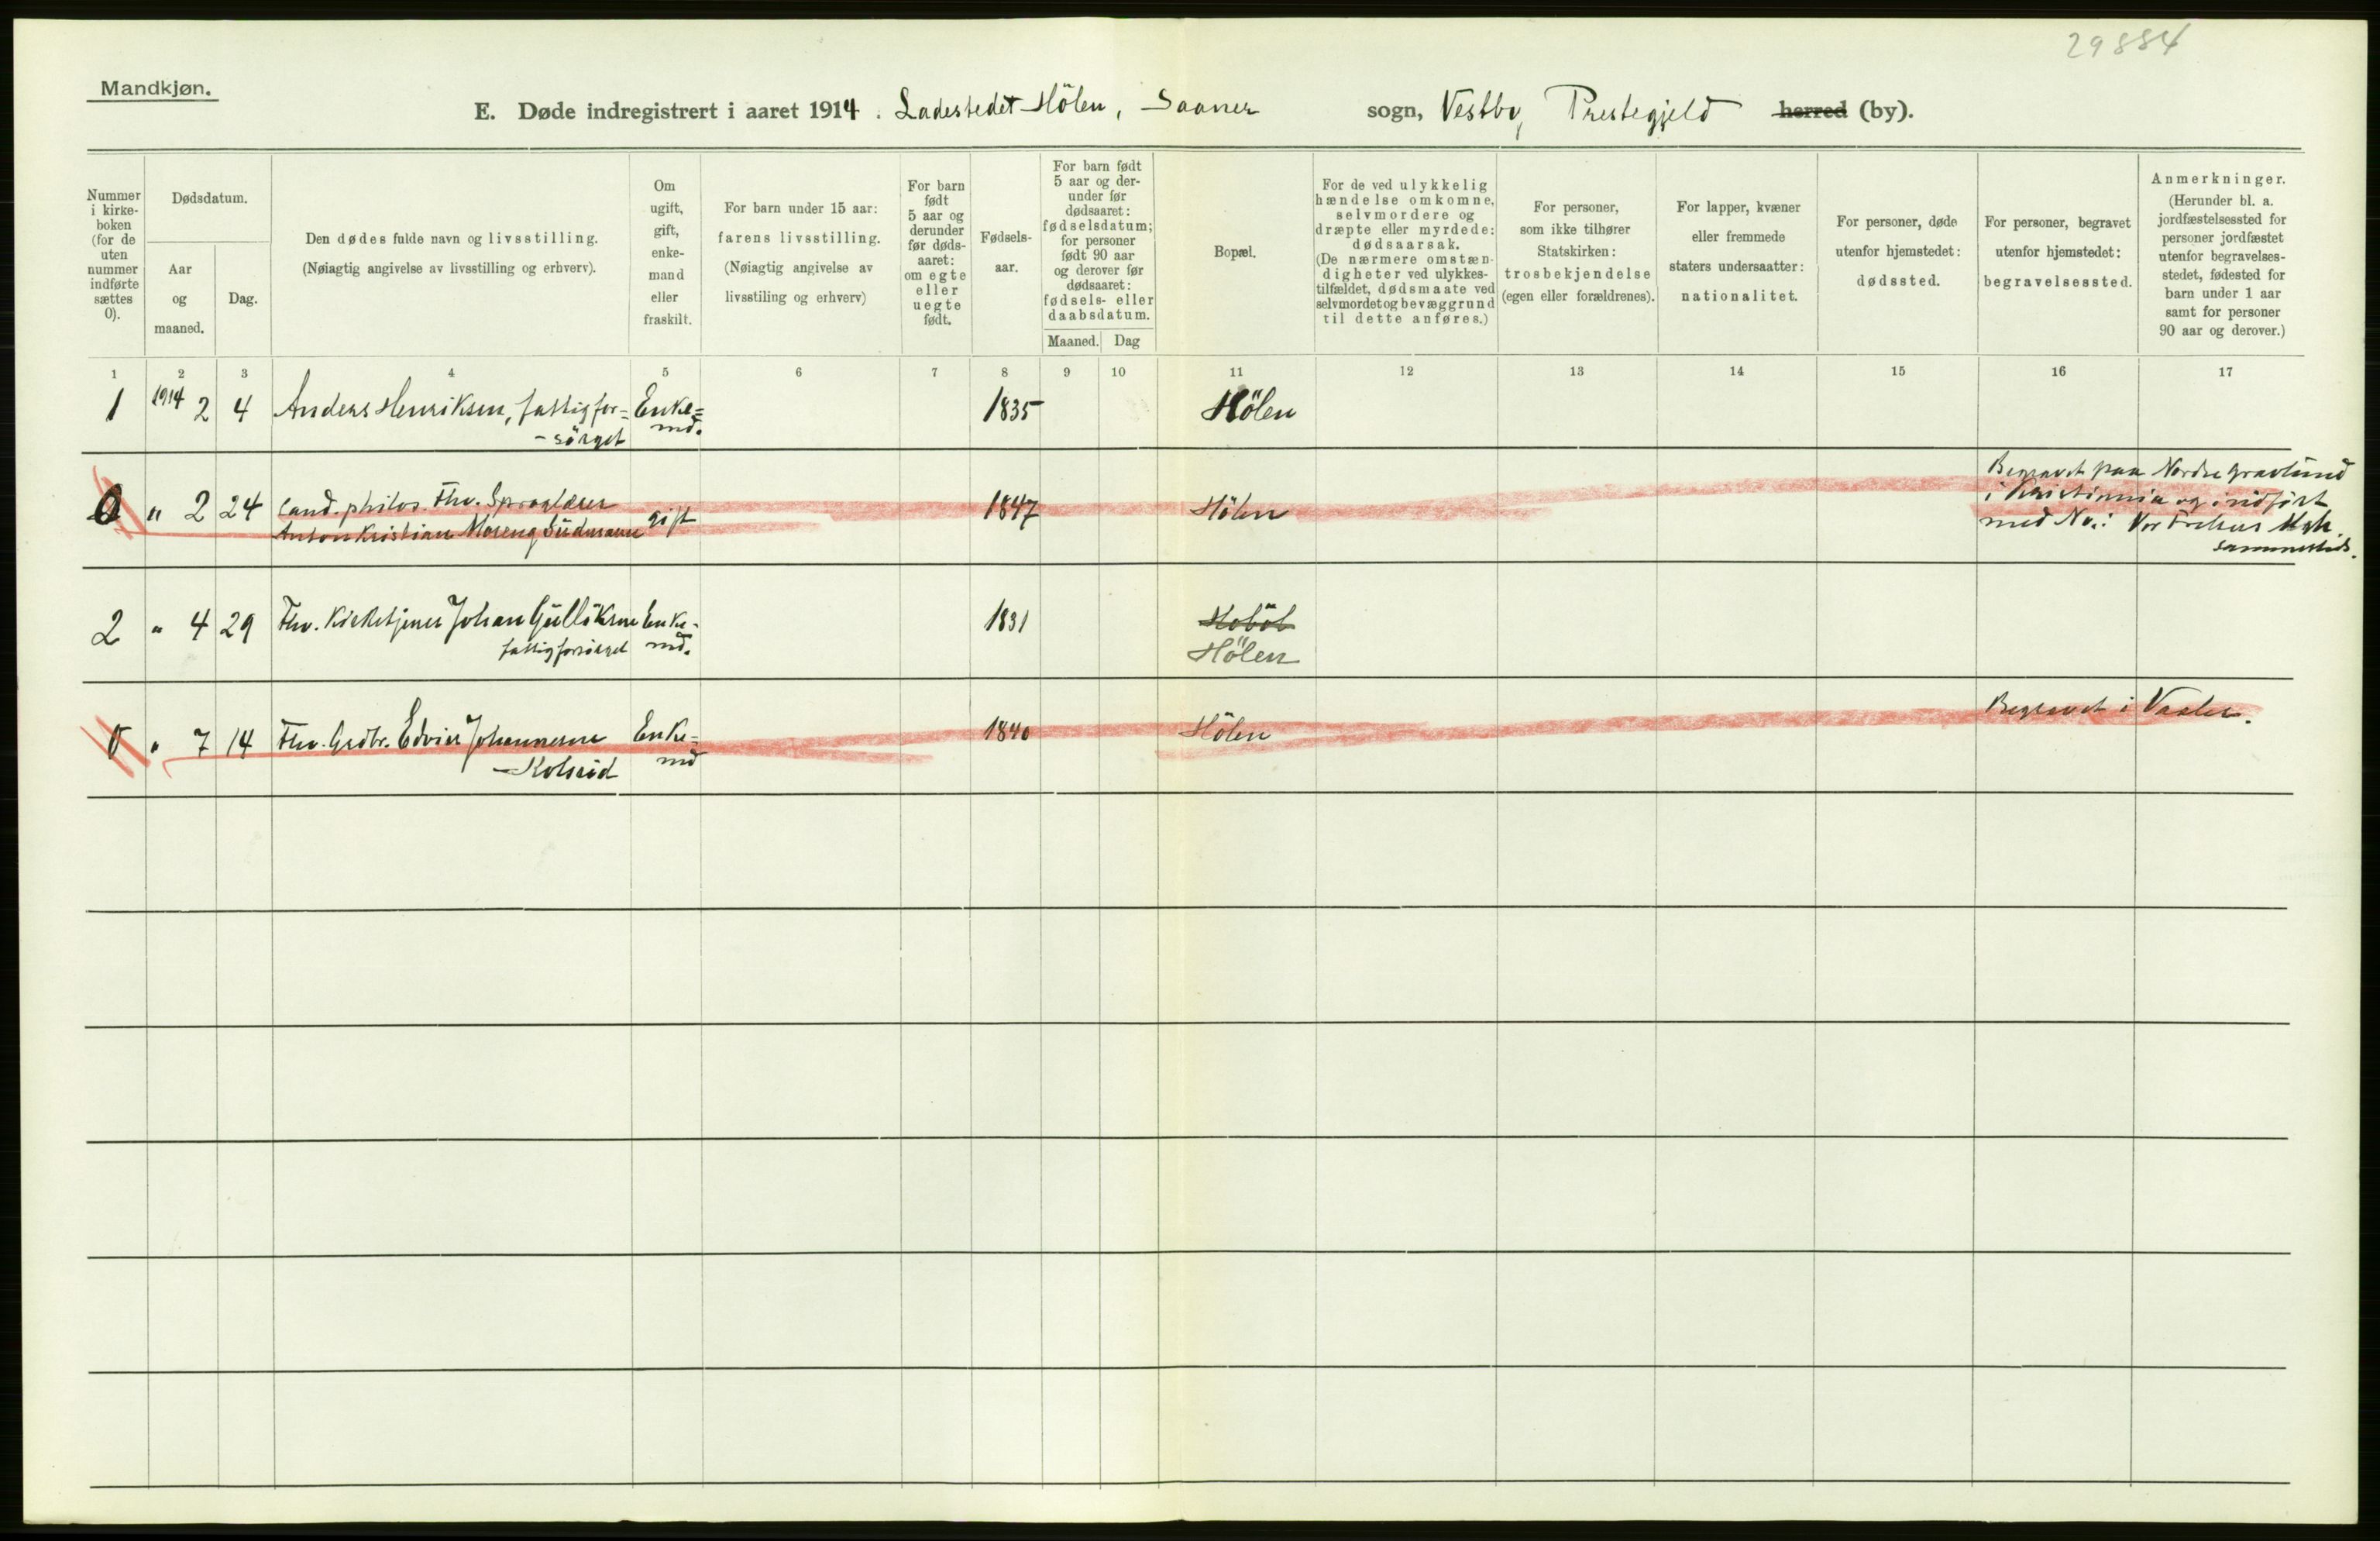 29884
Mandkjøn.
E. Døde indregistrert i aaret 1914. Ladestedet Hölen, Saaner sogn, Vestby Prestegjeld herred (by).
Nummer
i kirke-
boken
(for de
uten
nummer
indførte
sættes
0).
Dødsdatum.
Aar
og
maaned.
Dag.
Den dødes fulde navn og livsstilling.
(Nøiagtig angivelse av livsstilling og erhverv).
Om
ugift,
gift,
enke-
mand
eller
fraskilt.
For barn under 15 aar:
farens livsstilling.
(Nøiagtig angivelse av
livsstiling og erhverv)
For barn
født
5 aar og
derunder
før døds-
aaret:
om egte
eller
uegte
født.
Fødsels-
aar.
For barn født
5 aar og der-
under før
dødsaaret:
fødselsdatum;
for personer
født 90 aar
og derover før
dødsaaret:
fødsels- eller
daabsdatum.
Maaned. Dag
Bopæl.
For de ved ulykkelig
hændelse omkomne,
selvmordere og
dræpte eller myrdede:
dødsaarsak.
(De nærmere omstæn-
digheter ved ulykkes-
tilfældet, dødsmaate ved
selvmordet og bevæggrund
til dette anføres.)
For personer,
som ikke tilhører
Statskirken:
trosbekjendelse
(egen eller forældrenes).
For lapper, kvæner
eller fremmede
staters undersaatter:
nationalitet.
For personer, døde
utenfor hjemstedet:
dødssted.
For personer, begravet
utenfor hjemstedet:
begravelsessted.
Anmerkninger.
(Herunder bl. a.
jordfæstelsessted for
personer jordfæstet
utenfor begravelses-
stedet, fødested for
barn under 1 aar
samt for personer
90 aar og derover.)
1 2 3 4 5 6 7 8 9 10 11 12 13 14 15 16 17
1 1914 2 4 Anders Henriksen, fattigfor= Enke= 1835 Hölen
-sörget md.
0 " 2 24 cand. philos. Fhv. Sproglærer gift 1847 Hölen Begravet paa Nordre Gravlund
Anton Kristian Moseng i Kristiania og indført
med No.: Vor Frelsers Mgh.
sammesteds.
2 " 4 29 Fhv. Kirketjener Johan Gülliksen Enke- 1831 Hobøl
fattigforsörget md. Hölen
0 " 7 14 Fhv. Grdbr. Edvin Johannesen Enke= 1840 Hölen Begravet i Vaaler.
-Kolsrød md